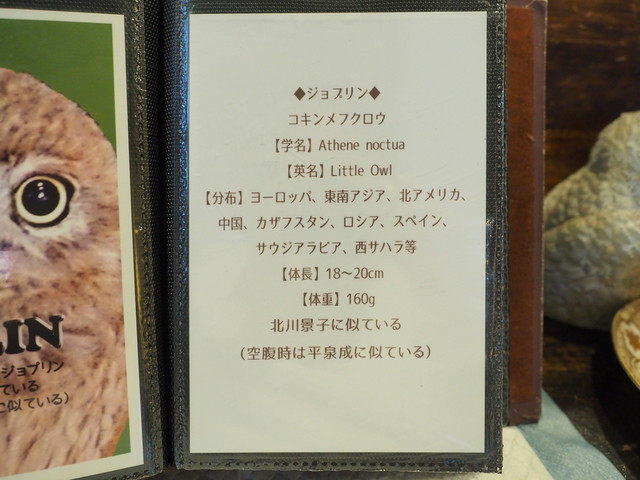 LIN
ジョブリン
ている
に似ている）
◆ジョブリン◆
コキンメフクロウ
【学名】Athene noctua
【英名】Little Owl
【分布】ヨーロッパ、東南アジア、北アメリカ、
中国、カザフスタン、ロシア、スペイン、
サウジアラビア、西サハラ等
【体長】18〜20cm
【体重】160g
北川景子に似ている
（空腹時は平泉成に似ている）